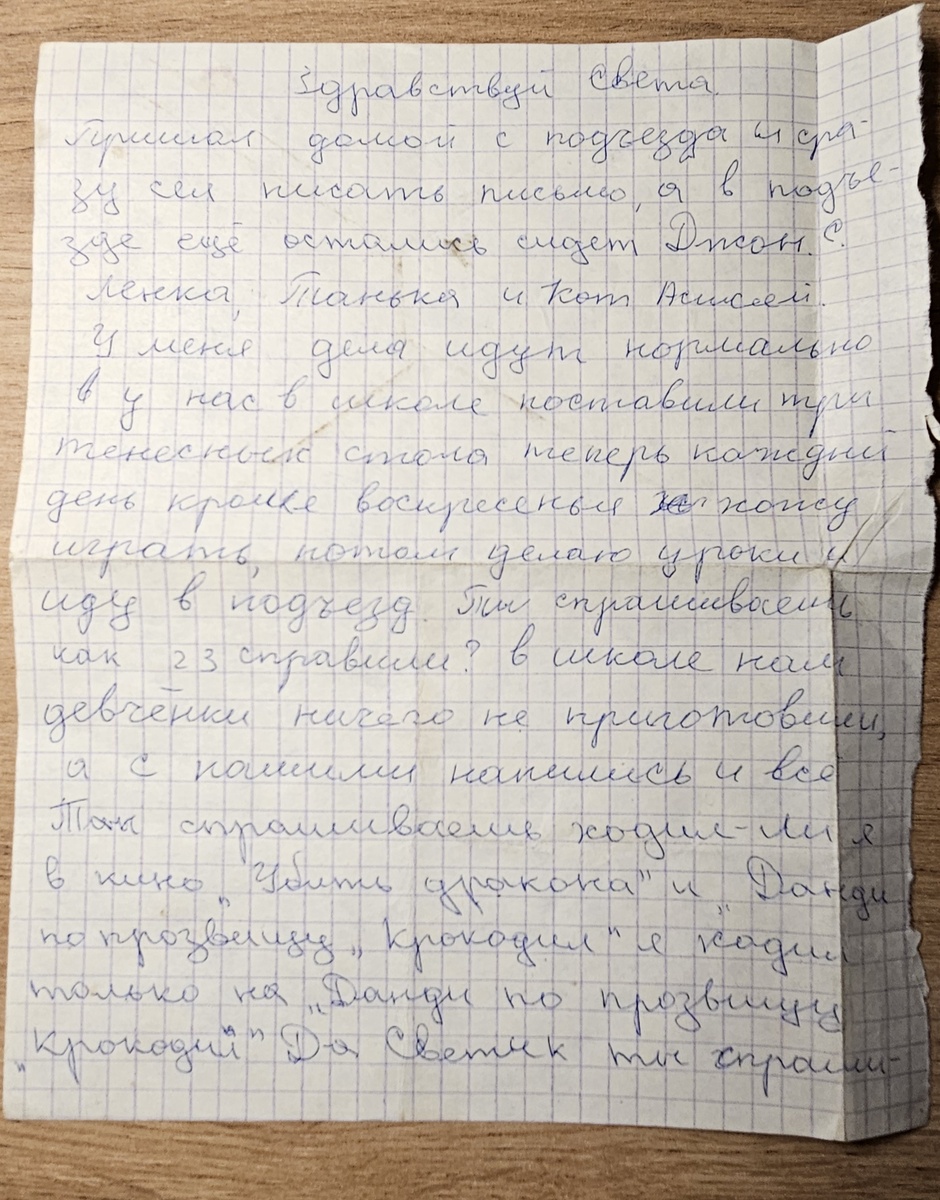 Здравствуй Света.
Пришол домой с подъезда и сра-
зу сел писать письмо, а в подъе-
зде ещё остались сидет Джон. С.
Ленка, Танька и Кот
У меня дела идут нормально
в у нас в школе поставили три
тенесных стола теперь каждий
день кроме воскресенья хожу
играть, потом делаю уроки и
иду в подъезд. Ты спрашиваешь
как 23 справили? в школе нам
девчёнки ничего не приготовили,
а с нашими напились и всё
Так спрашиваешь ходил-ли я
в кино „Убить дракона" и „Данди
по прозвищу „Крокодил" я ходил
только на „Данди по прозвищу
„Крокодил" Да Светик ты спраши-